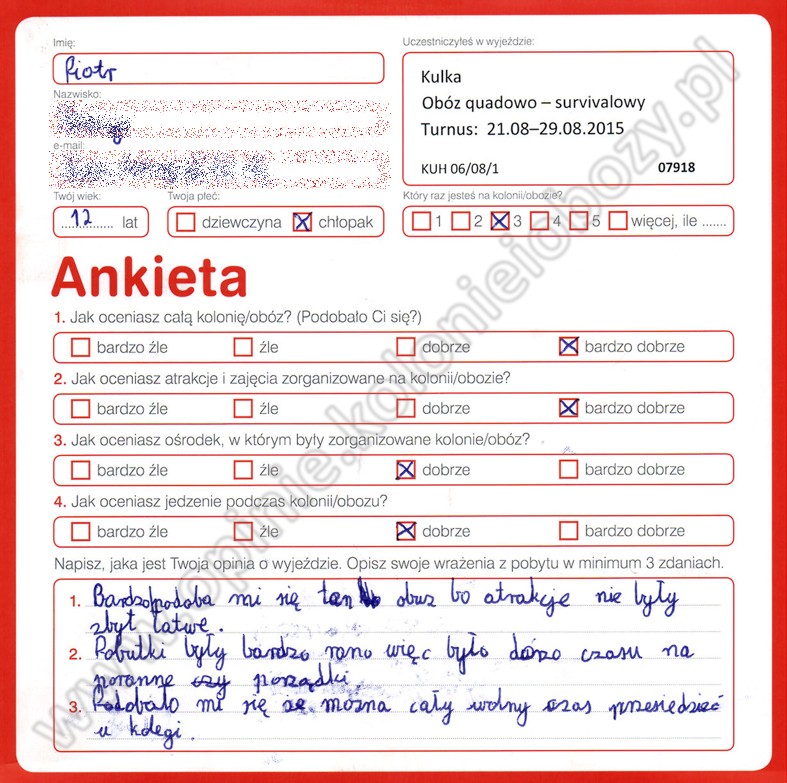 Imię:
Piotr
Nazwisko:
e-mail:
Twój wiek:
12 lat
Twoja płeć:
dziewczyna chłopak
Uczestniczyłeś w wyjeździe:
Kulka
Obóz quadowo – survivalowy
Turnus: 21.08–29.08.2015
KUH 06/08/1 07918
Który raz jesteś na kolonii/obozie?
1 2 3 4 5 więcej, ile .......
Ankieta
1. Jak oceniasz całą kolonię/obóz? (Podobało Ci się?)
bardzo źle źle dobrze bardzo dobrze
2. Jak oceniasz atrakcje i zajęcia zorganizowane na kolonii/obozie?
bardzo źle źle dobrze bardzo dobrze
3. Jak oceniasz ośrodek, w którym były zorganizowane kolonie/obóz?
bardzo źle źle dobrze bardzo dobrze
4. Jak oceniasz jedzenie podczas kolonii/obozu?
bardzo źle źle dobrze bardzo dobrze
Napisz, jaka jest Twoja opinia o wyjeździe. Opisz swoje wrażenia z pobytu w minimum 3 zdaniach.
1. Bardzo podoba mi się ten obuz bo atrakcje nie były
zbyt łatwe.
2. Pobutki były bardzo rano więc było dożo czasu na
poranne porządki.
3. Podobało mi się że można cały wolny czas przesiedzieć
u kolegi.
www.opinie.kolonieiobozy.pl